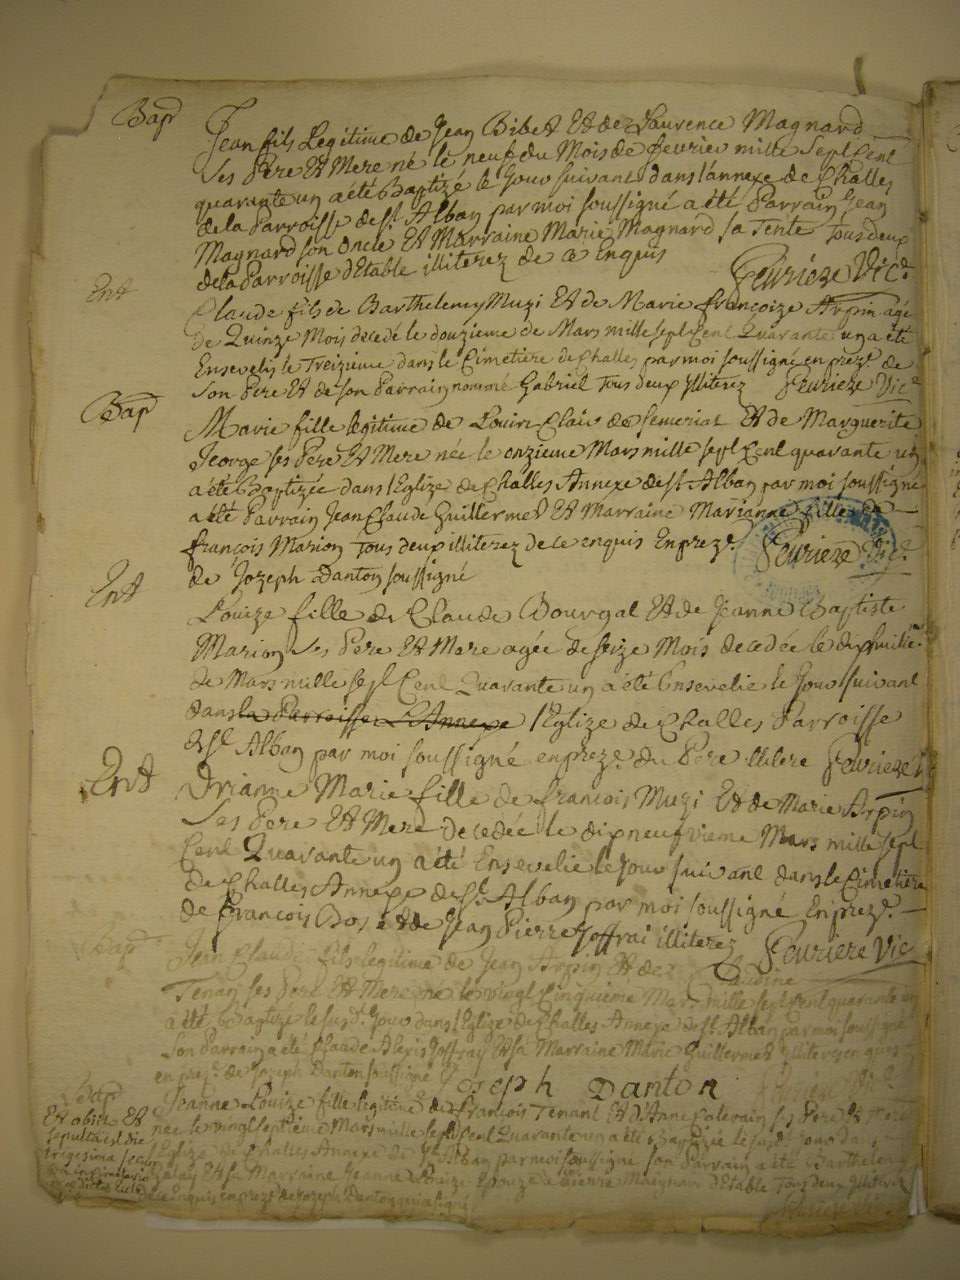 Bap
Jean fils Legitime de Jean Bibet Et de Laurence Magnard
Ses Pere Et Mere né le neuf du Mois de fevrier mille Sept Cent
quarante un a été Baptizé le Jour suivant dans l'annexe de Challes
de la Parroisse de St Alban par moi soussigné a été Parrain Jean
Magnard son Oncle Et Marraine Marie Magnard sa Tente Tous deux
de la Parroisse d'Etable illiterez de ce Enquis Feurieze Vic.
Ent
Claude fils de Barthelemy Muzi Et de Marie françoize Arpin agé
de Quinze Mois decedé le douzieme de Mars mille Sept Cent Quarante un a été
Ensevelis le Treizieme dans le Cimetiere de Challes par moi soussigné en prez.e de
Son Pere Et de son Parrain nommé Gabriel Tous deux illiterez Feurieze Vic.e
Bap
Marie fille legitime de Clair de Et de Marguerite
George ses Pere Et Mere née le onzieme Mars mille sept Cent quarante un
a été Baptizée dans l'Eglize de Challes Annexe de St Alban par moi soussigné
a été Parrain Jean Claude Guillermet Et Marraine Marianne fille de
françois Marion Tous deux illiterez de ce enquis En prez.e Feurieze Vic.e
de Jozeph Danton soussigné
Ent
Louize fille de Claude Bourgal Et de Jeanne Baptiste
Marion Ses Pere Et Mere agée de seize Mois decedée le dixhuitie.me
de Mars mille sept Cent Quarante un a été Ensevelie le Jour suivant
dans la Parroisse L'Annexe l'Eglize de Challes Parroisse
de St Alban par moi soussigné en prez.e du Pere illitere Feurieze
Ent
Marie fille de francois Muzi Et de Marie Arpin
Ses Pere Et Mere decedée le dixneufvieme Mars mille sept
Cent Quarante un a été Ensevelie le Jour suivant dans le Cimetiere
de Challes Annexe de St Alban par moi soussigné En prez.e
de francois Et de Jean Pierre Joffrai illiterez Feurieze Vic
Bap
Jean Claude fils legitime de Jean Arpin Et de Claudine
Tenan ses Pere Et Mere né le vingt Cinquieme Mars mille sept Cent quarante un
a été Baptizé le susd.t Jour dans l'Eglize de Challes Annexe de St Alban par moi soussigné
Son Parrain a été Claude Alexis Joffray Et sa Marraine Marie Guillermet illiterez
en prez.e de Jozeph Danton soussigné Joseph Danton
Bap
Jeanne Louize fille legitime de francois Tenant Et d'Anne ses Pere Et
née le vingt septieme Mars mille sept Cent Quarante un a été Baptizée le susd.t Jour
l'Eglize de Challes Annexe de St Alban par moi soussigné son Parrain a été
Et sa Marraine Jeanne Louize d'Etable Tous deux illiterez
de ce Enquis en prez.e de Jozeph Danton
Et obiit Et
sepulta est die
trigesima